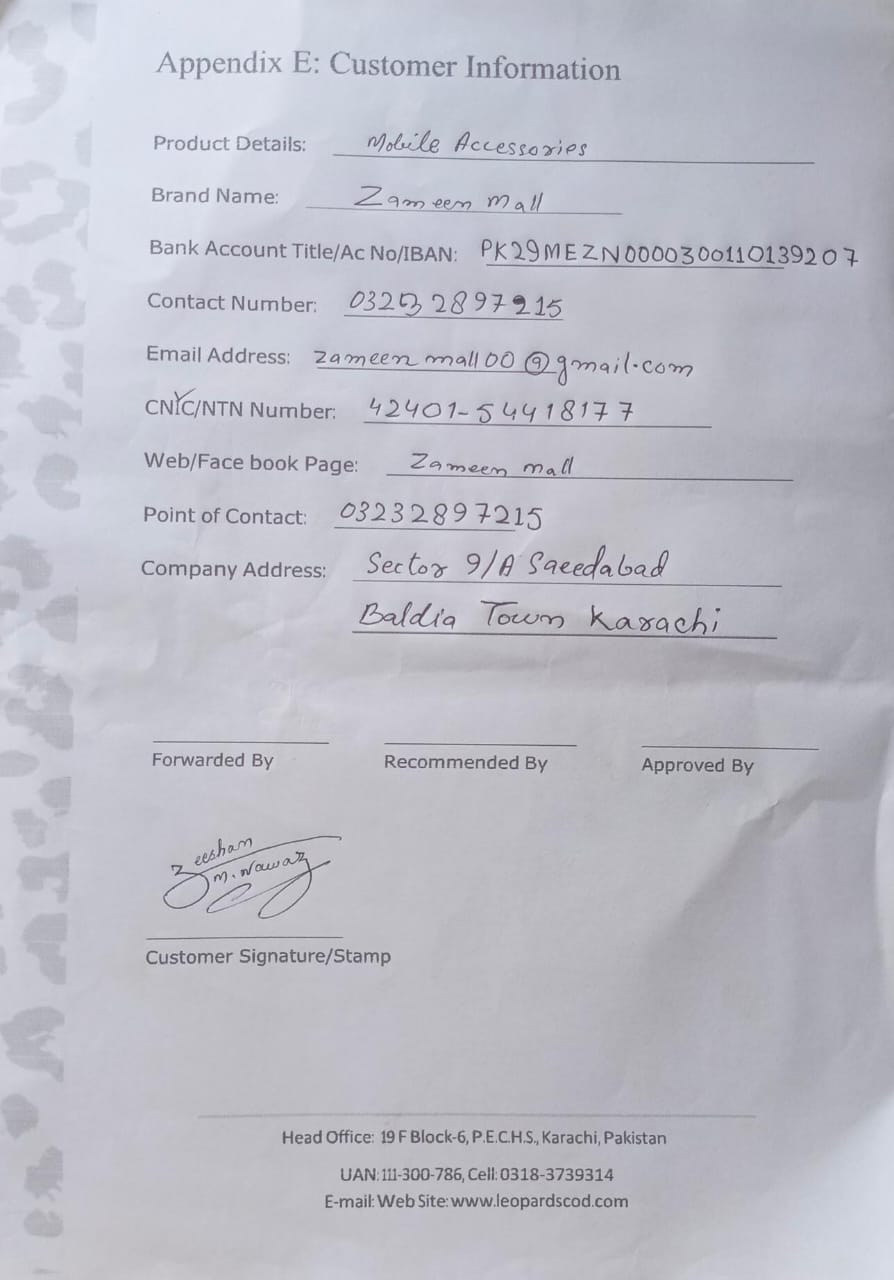 Appendix E: Customer Information
Product Details: Mobile Accessories
Brand Name: Zameen Mall
Bank Account Title/Ac No/IBAN: PK29MEZN0000300110139207
Contact Number: 03232897215
Email Address: zameenmall00@gmail.com
CNIC/NTN Number: 42401-54418177
Web/Face book Page: Zameen mall
Point of Contact: 03232897215
Company Address: Sector 9/A Saeedabad
Baldia Town Karachi
Forwarded By Recommended By Approved By
Zeeshan
M. Nawaz
Customer Signature/Stamp
Head Office: 19 F Block-6, P.E.C.H.S., Karachi, Pakistan
UAN: 111-300-786, Cell: 0318-3739314
E-mail: Web Site: www.leopardscod.com